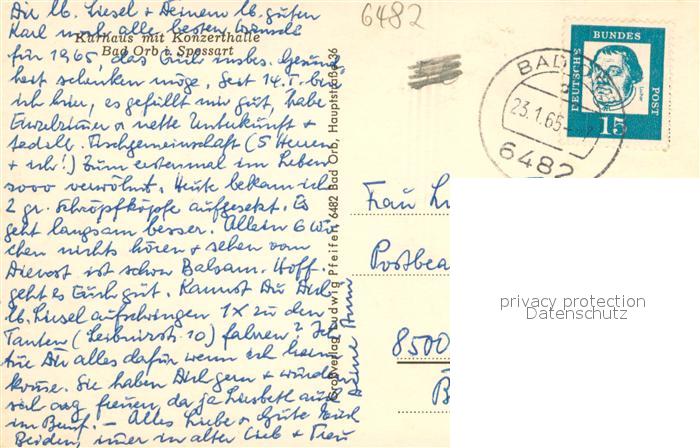 Dir lb. Liesel + Deinem lb. guten
Karl noch alle besten Wünsche
Kurhaus mit Konzerthalle
Bad Orb i. Spessart
für 1965, das Euch insbes. Gesund
heit schenken möge. Seit 14.1. bin
ich hier, es gefällt mir gut, habe
Einzelzimmer + nette Unterkunft +
tadell. Tischgemeinschaft (5 Herren
+ ich!) Zum erstenmal im Leben
sooo verwöhnt. Heute bekam ich
2 gr. Schröpfköpfe aufgesetzt. Es
geht langsam besser. Allein 6 Wo
chen nichts hören + sehen vom
Dienst ist schon Balsam. Hoff.
geht es Euch gut. Kannst Du Dich
lb. Liesel aufschwingen 1x zu den
Tanten (Leibnizstr. 10) fahren? Ich
tue Dir alles dafür wenn ich heim
komme. Sie haben Dich gern + würden
sich arg freuen, da ja Liesbeth auch
im Beruf. – Alles Liebe + Gute Euch
Beiden, immer in alter Lieb + Treu
Deine Anni
Großverlag Ludwig Pfeifer, 6482 Bad Orb, Hauptstraße 36
6482
BAD
23.1.65
6482
DEUTSCHE BUNDES POST
15
Frau
Postbea
8500
privacy protection
Datenschutz